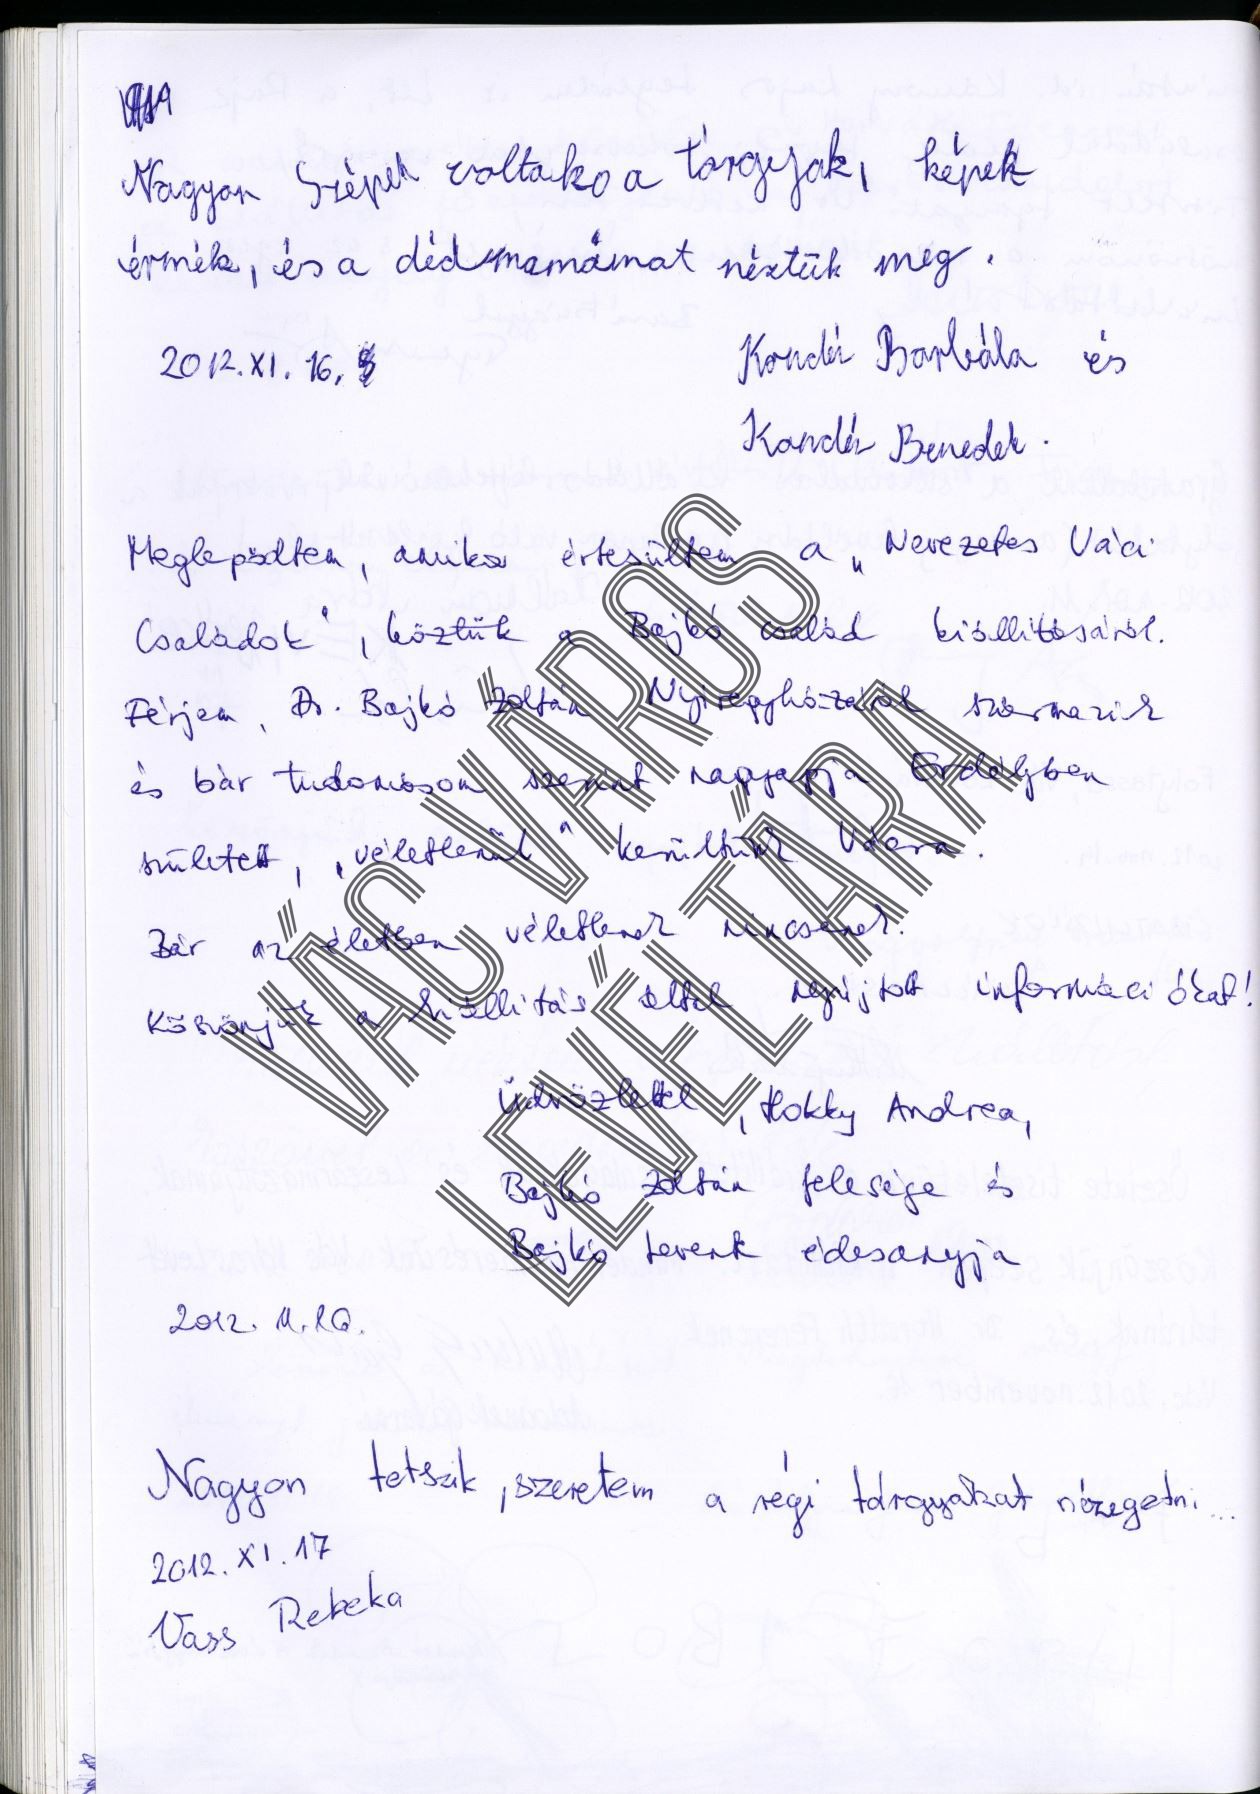 Nagyon szépek voltak a tárgyak, képek
érmék, és a dédmamámat néztük meg.
2012. XI. 16.
Kondér Borbála és
Kondér Benedek.
Meglepődtem, amikor értesültem a „Nevezetes Váci
Családok", köztük a Bajkó család kiállításáról.
Férjem, Dr. Bajkó Zoltán Nyíregyházáról származik
és bár tudomásom szerint nagyapja Erdélyben
született, „véletlenül" kerültünk Vácra.
Bár az életben véletlenek nincsenek.
Köszönjük a kiállítás által nyújtott információkat!
Üdvözlettel, Hokky Andrea,
Bajkó Zoltán felesége és
Bajkó Levente édesanyja
2012. 11.
Nagyon tetszik, szeretem a régi tárgyakat nézegetni...
2012. XI. 17
Vass Rebeka
VÁC VÁROS
LEVÉLTÁRA